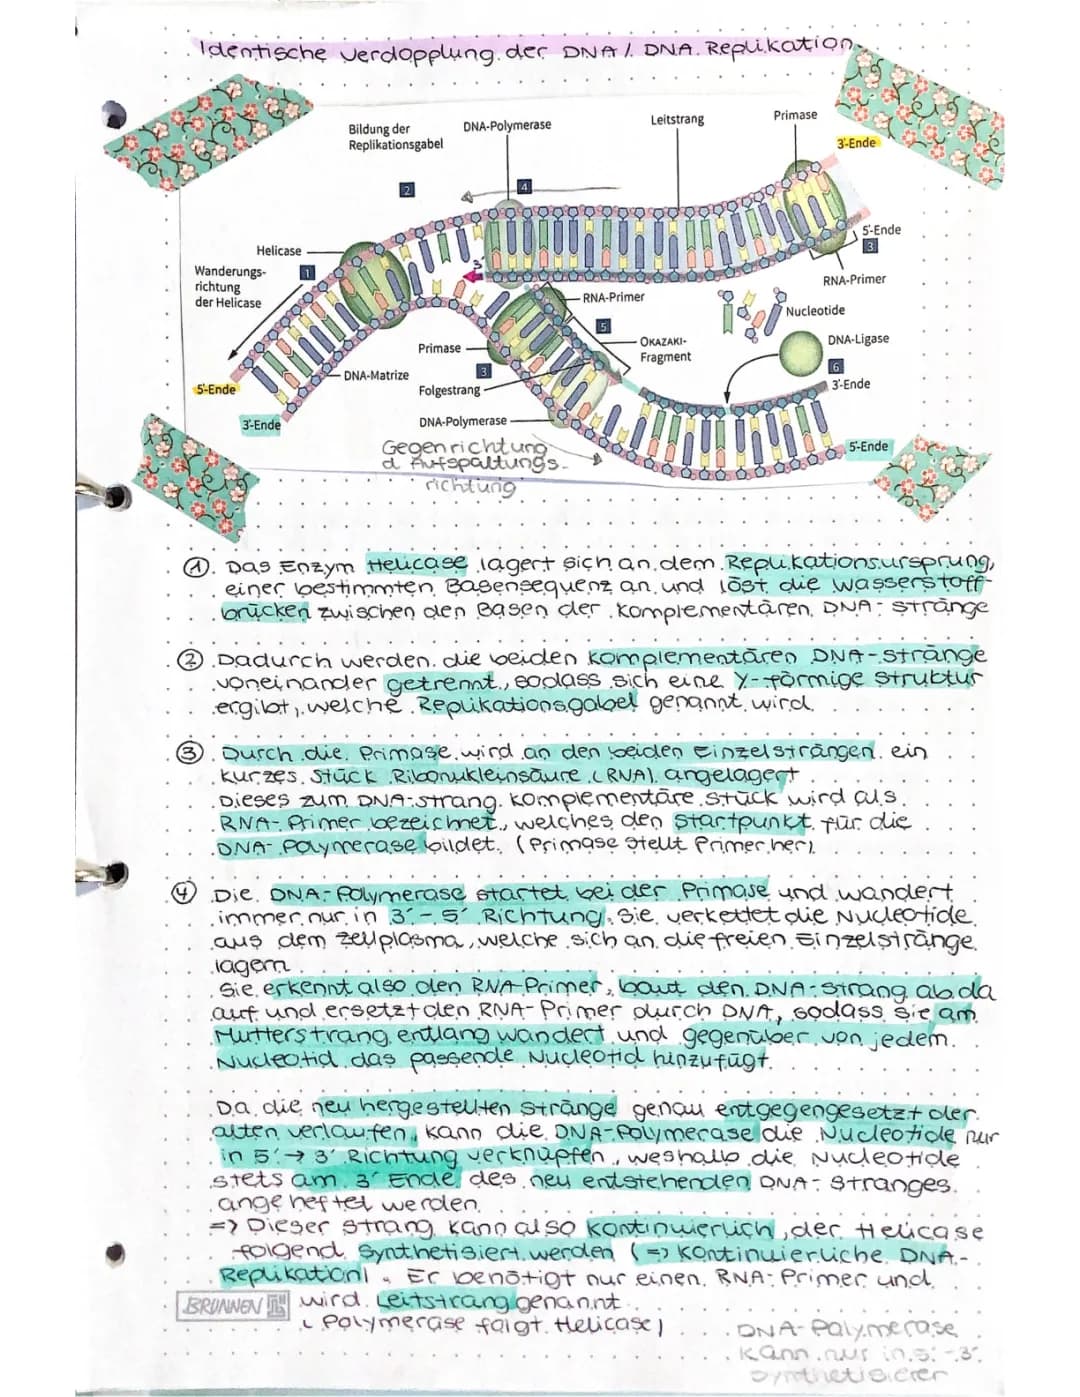 Identische Verdopplung der DNA / DNA Replikation
Bildung der
Replikationsgabel
DNA-Polymerase
Leitstrang
Primase
3'-Ende
2
4
5'-Ende
3
Helicase
Wanderungs-
richtung
der Helicase
1
3'
RNA-Primer
RNA-Primer
Nucleotide
5
OKAZAKI-
Fragment
DNA-Ligase
6
3'-Ende
Primase
3
DNA-Matrize
Folgestrang
5'-Ende
3'-Ende
DNA-Polymerase
5'-Ende
Gegenrichtung
d. Aufspaltungs-
richtung
① Das Enzym Helicase lagert sich an dem Replikationsursprung,
einer bestimmten Basensequenz an und löst die Wasserstoff-
brücken zwischen den Basen der komplementären DNA-Stränge
② Dadurch werden die beiden komplementären DNA-Stränge
voneinander getrennt, sodass sich eine Y-förmige Struktur
ergibt, welche Replikationsgabel genannt wird.
③ Durch die Primase wird an den beiden Einzelsträngen ein
kurzes Stück Ribonukleinsäure (RNA) angelagert
Dieses zum DNA-Strang komplementäre Stück wird als
RNA-Primer bezeichnet, welches den Startpunkt für die
DNA-Polymerase bildet. (Primase stellt Primer her)
④ Die DNA-Polymerase startet bei der Primase und wandert
immer nur in 3'-5' Richtung. Sie verkettet die Nucleotide
aus dem Zellplasma, welche sich an die freien Einzelstränge
lagern.
Sie erkennt also den RNA-Primer, baut den DNA-Strang ab da
auf und ersetzt den RNA-Primer durch DNA, sodass sie am
Mutterstrang entlang wandert und gegenüber von jedem
Nucleotid das passende Nucleotid hinzufügt.
Da die neu hergestellten Stränge genau entgegengesetzt der
alten verlaufen, kann die DNA-Polymerase die Nucleotide nur
in 5' → 3' Richtung verknüpfen, weshalb die Nucleotide
stets am 3' Ende des neu entstehenden DNA-Stranges
angeheftet werden.
=> Dieser Strang kann also kontinuierlich, der Helicase
folgend synthetisiert werden (=> kontinuierliche DNA-
Replikation). Er benötigt nur einen RNA-Primer und
BRUNNEN wird Leitstrang genannt.
(Polymerase folgt Helicase)
DNA-Polymerase
kann nur in 5'-3'
synthetisieren